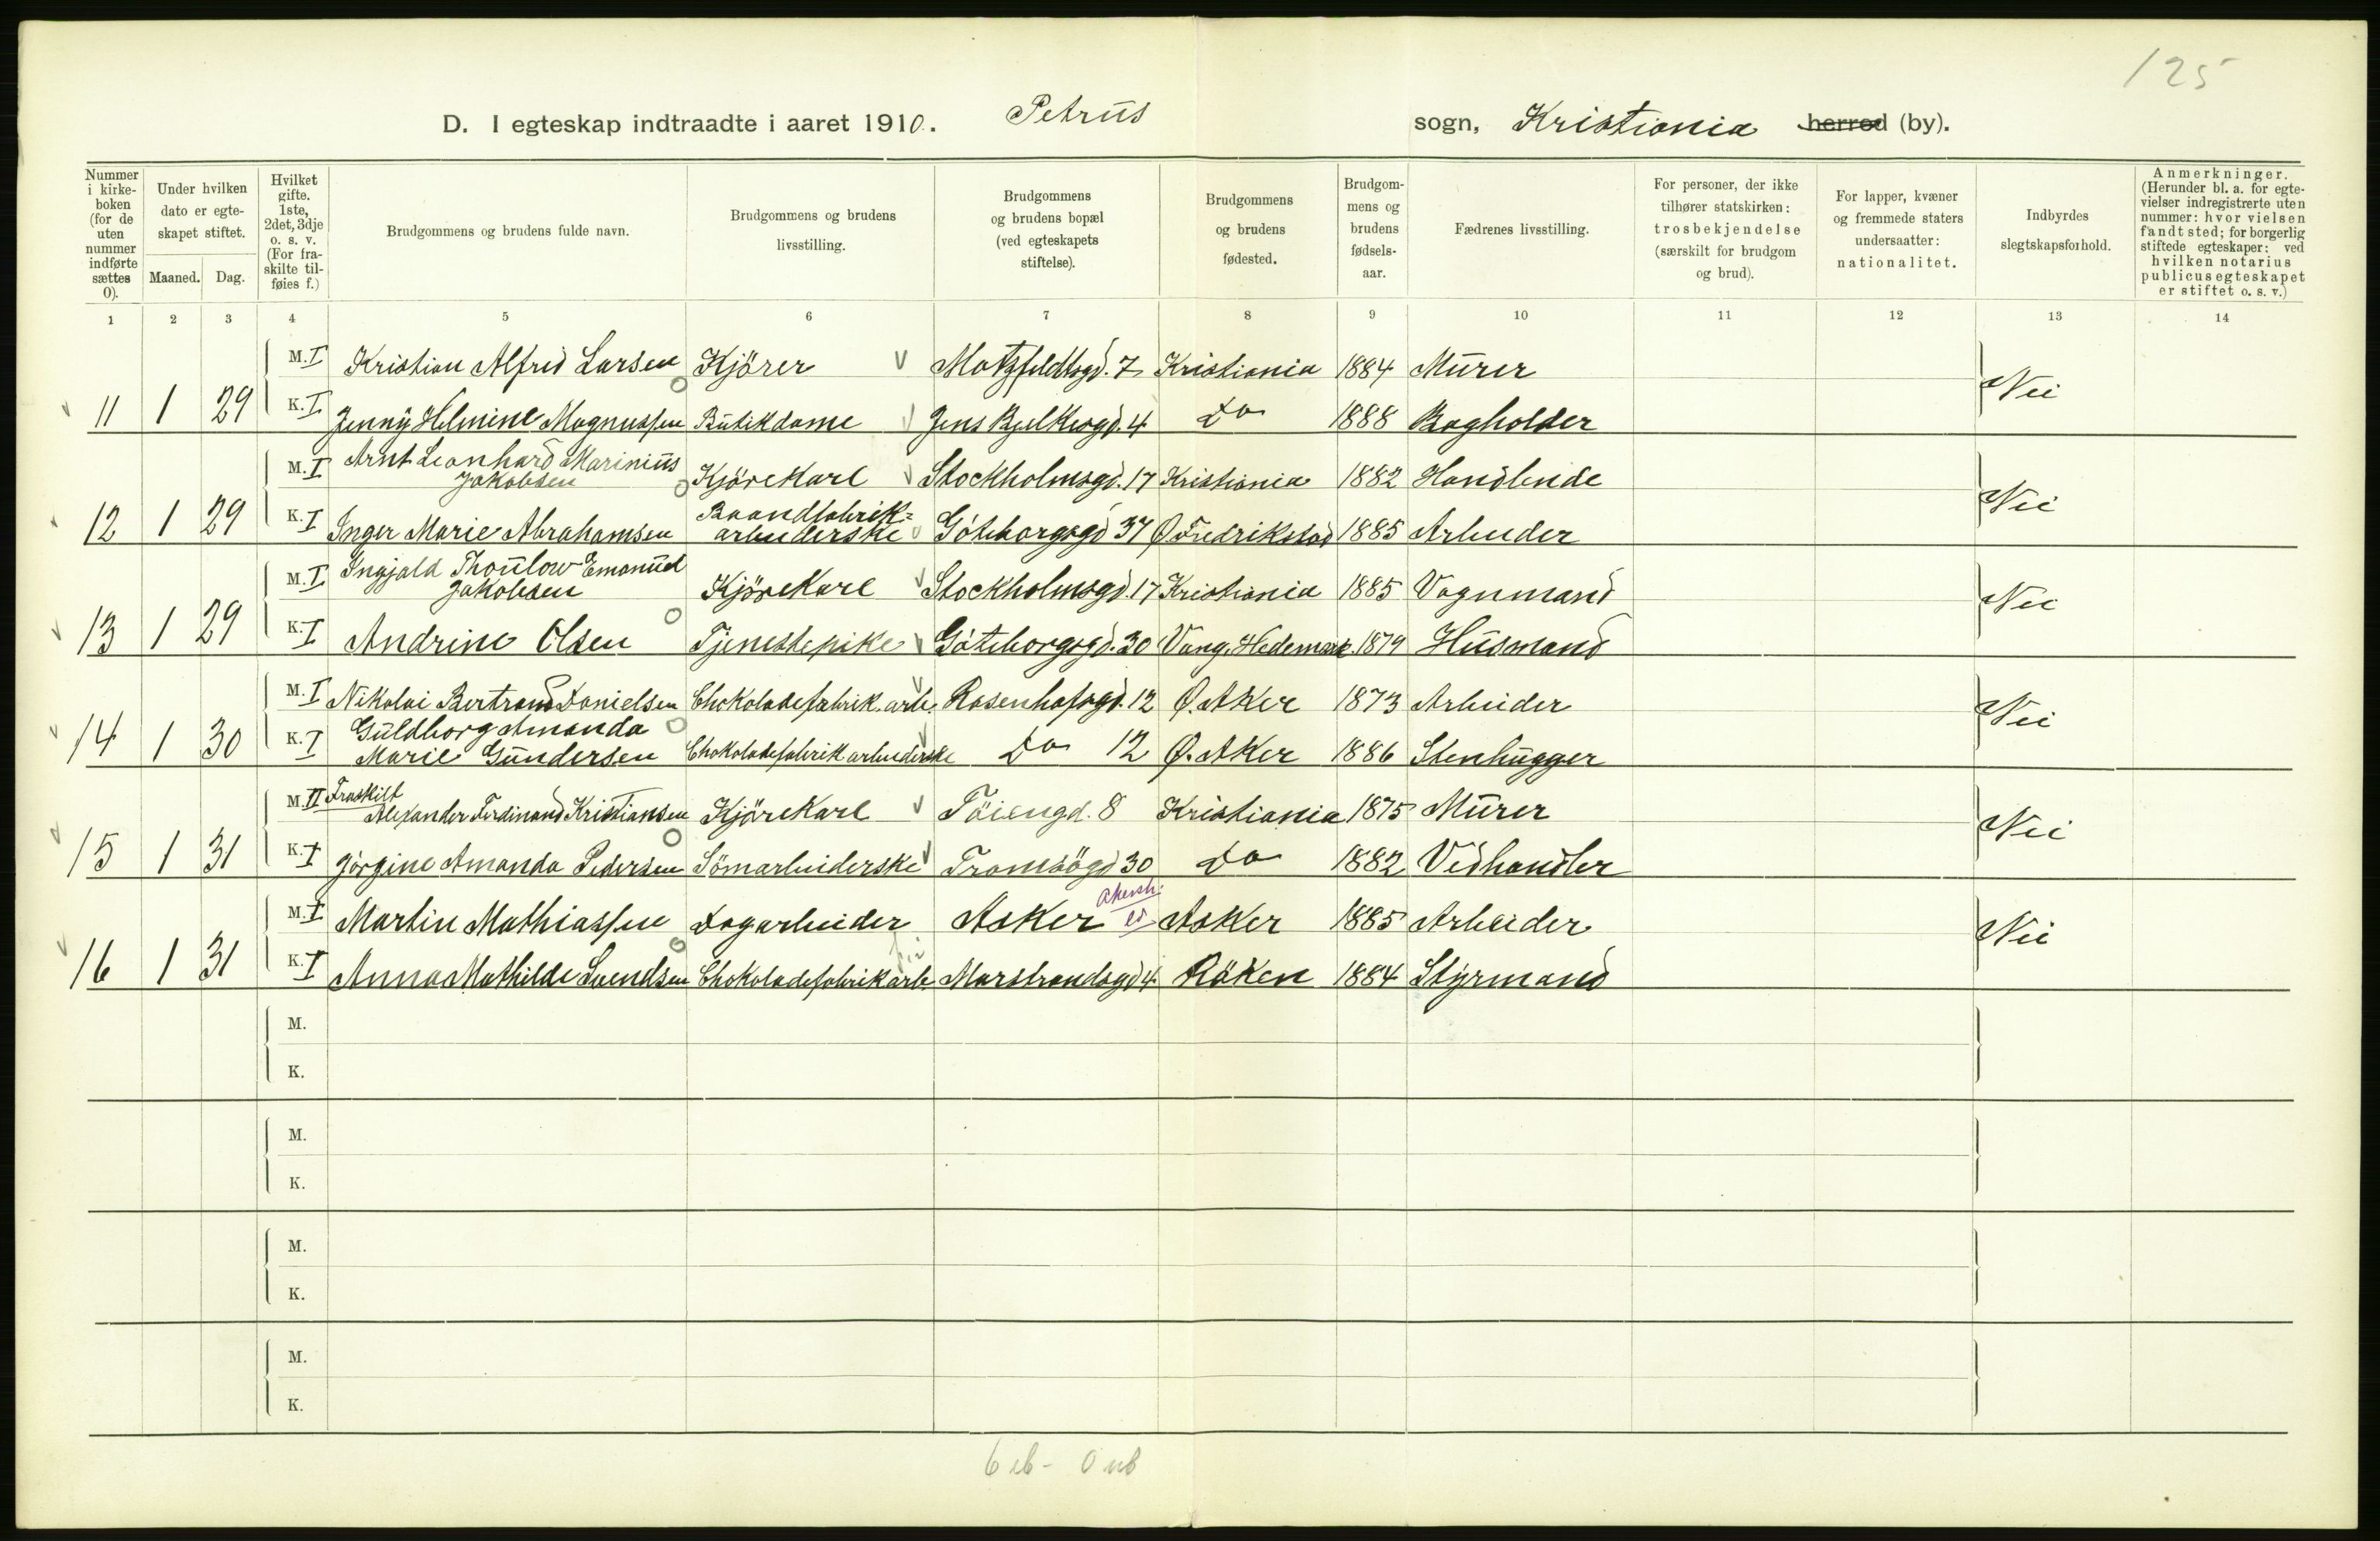 125
D. I egteskap indtraadte i aaret 1910. Petrus sogn, Kristiania herred (by).
Nummer i kirke-boken (for de uten nummer indførte sættes 0).
Under hvilken dato er egte-skapet stiftet.
Maaned. Dag.
Hvilket gifte. 1ste, 2det, 3dje o. s. v. (For fra-skilte til-føies f.)
Brudgommens og brudens fulde navn.
Brudgommens og brudens livsstilling.
Brudgommens og brudens bopæl (ved egteskapets stiftelse).
Brudgommens og brudens fødested.
Brudgom-mens og brudens fødsels-aar.
Fædrenes livsstilling.
For personer, der ikke tilhører statskirken: trosbekjendelse (særskilt for brudgom og brud).
For lapper, kvæner og fremmede staters undersaatter: nationalitet.
Indbyrdes slegtskapsforhold.
Anmerkninger. (Herunder bl. a. for egte-vielser indregistrerte uten nummer: hvor vielsen fandt sted; for borgerlig stiftede egteskaper: ved hvilken notarius publicus egteskapet er stiftet o. s. v.)
1 2 3 4 5 6 7 8 9 10 11 12 13 14
M. I Kristian Alfred Larsen Kjörer Motzfeldtsgd. 7 Kristiania 1884 Murer
11 1 29 K. I Jenny Helmine Magnussen Butikdame Jens Bjelkesgd. 4 Do 1888 Bogholder Nei
M. I Arnt Leonhard Marinius
Jakobsen Kjörekarl Stockholmsgd. 17 Kristiania 1882 Handlende
12 1 29 K. I Inger Marie Abrahamsen Baandfabrik=
arbeiderske Göteborgsgd 37 Ø Fredrikstad 1885 Arbeider Nei
M. I Ingjald Thoulow Emanuel
Jakobsen Kjörekarl Stockholmsgd. 17 Kristiania 1885 Vognmand
13 1 29 K. I Andrine Olsen Tjenestepike Göteborgsgd. 30 Vang. Hedemark. 1879 Husmand Nei
M. I Nikolai Bertrand Danielsen Chokoladefabrik.arb. Rosenhofsgd. 12 Ø. Aker 1873 Arbeider
14 1 30 K. I Guldborg Amanda
Marie Gundersen Chokoladefabrik arbeiderske Do 12 Ø. Aker 1886 Stenhugger Nei
M. II Fraskilt
Alexander Ferdinand Kristiansen Kjörekarl Töiengd. 8 Kristiania 1875 Murer
15 1 31 K. I Jörgine Amanda Pedersen Sömarbeiderske Tromsögd 30 Do 1882 Vedhandler Nei
M. I Martin Mathiassen Dagarbeider Asker Akersh. Asker 1885 Arbeider
16 1 31 K. I Anna Mathilde Svendsen Chokoladefabrik arb. Marstrandsgd 4 Röken 1884 Styrmand Nei
M.
K.
M.
K.
M.
K.
M.
K.
6 eb - 0 ub